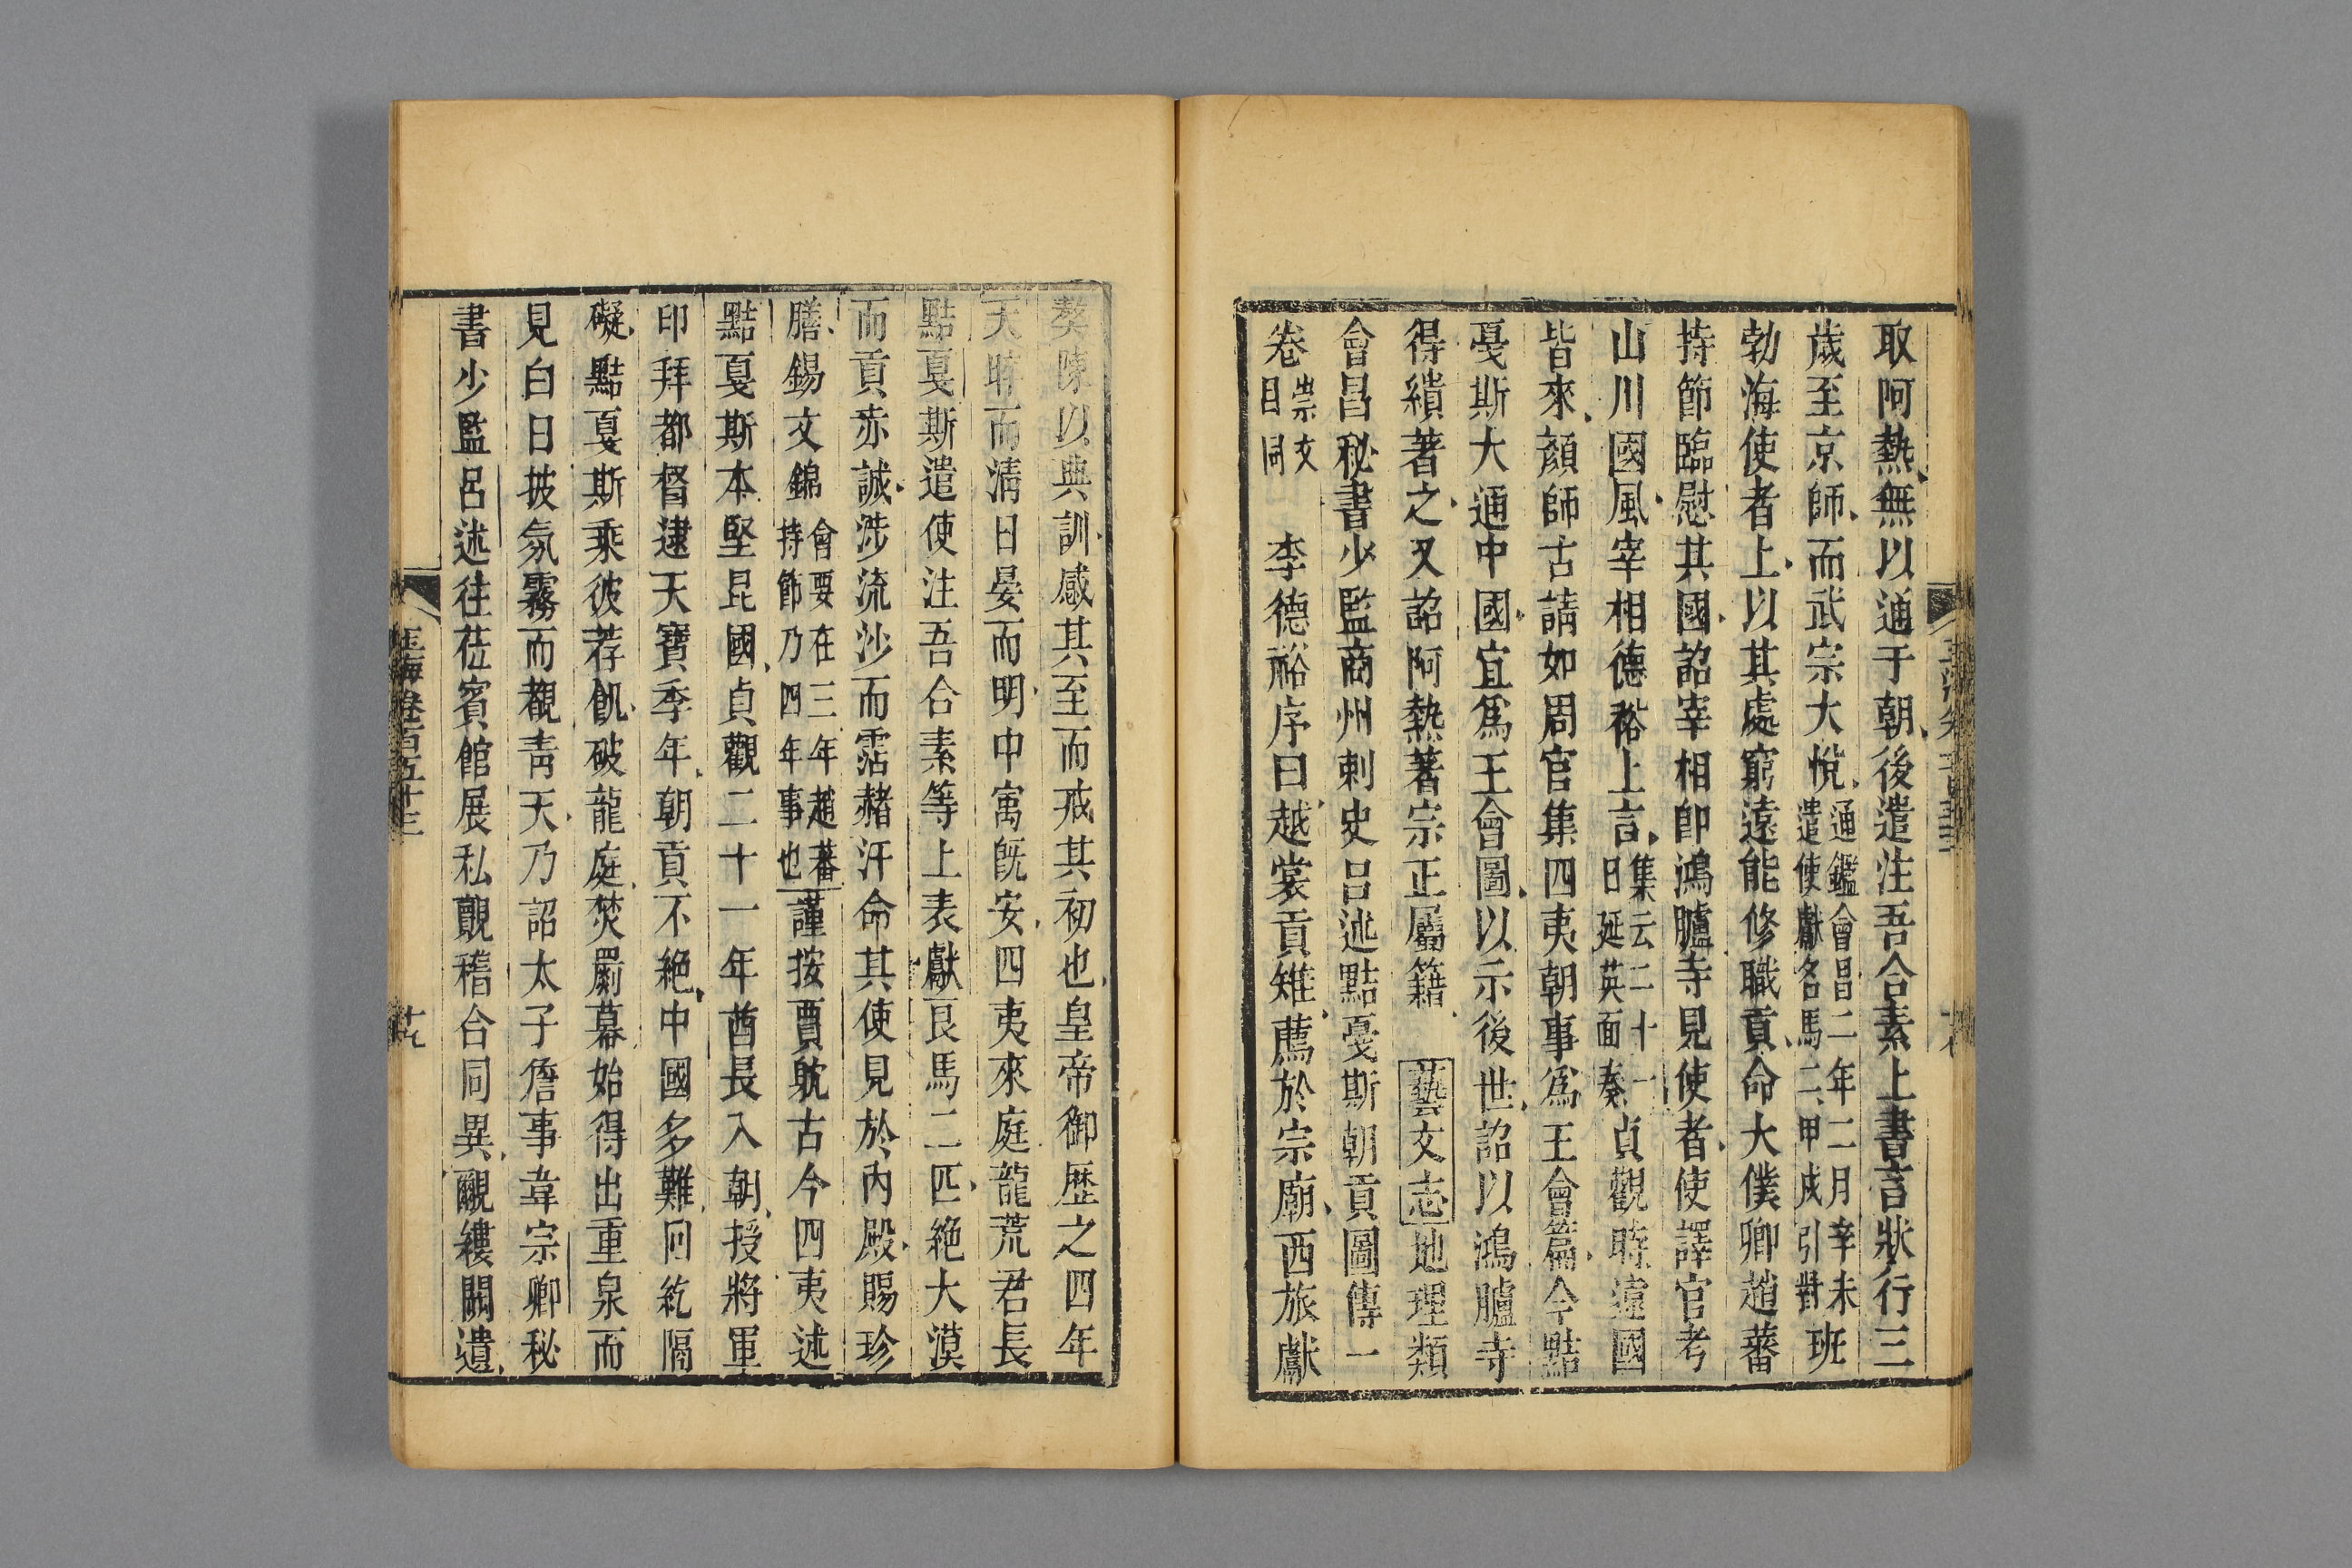 取阿熱無以通于朝後遣注吾合素上書言狀行三
歲至京師而武宗大悅通鑑會昌二年二月辛未遣使獻名馬二甲戌引對班
勃海使者上以其處窮遠能修職貢命大僕卿趙蕃
持節臨慰其國詔宰相即鴻臚寺見使者使譯官考
山川國風宰相德裕上言集云二十一日延英面奏貞觀時遠國
皆來顏師古請如周官集四夷朝事爲王會篇今黠
戛斯大通中國宜爲王會圖以示後世詔以鴻臚寺
得繢著之又詔阿熱著宗正屬籍 藝文志地理類
會昌秘書少監商州刺史呂述黠戛斯朝貢圖傳一
卷崇文目同 李德裕序曰越裳貢雉薦於宗廟西旅獻
獒陳以典訓感其至而戒其初也皇帝御歷之四年
天睟而清日晏而明中寓旣安四夷來庭龍荒君長
黠戛斯遣使注吾合素等上表獻良馬二匹絶大漠
而貢赤誠涉流沙而霑赭汗命其使見於內殿賜珍
膳錫文錦會要在三年趙蕃持節乃四年事也謹按賈躭古今四夷述
黠戛斯本堅昆國貞觀二十一年酋長入朝授將軍
印拜都督逮天寶季年朝貢不絶中國多難囘紇隔
礙黠戛斯乘彼荐飢破龍庭焚罽幕始得出重泉而
見白日披氛霧而覩青天乃詔太子詹事韋宗卿秘
書少監呂述往莅賓館展私覿稽合同異覼縷闕遺
玉海卷百五十三